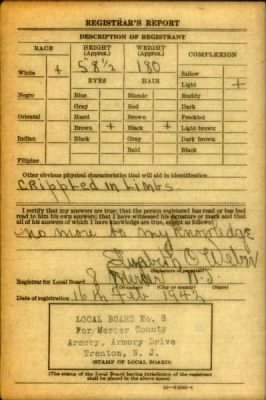 REGISTRAR'S REPORT
DESCRIPTION OF REGISTRANT
RACE HEIGHT (Approx.) WEIGHT (Approx.) COMPLEXION
5 8½ 180
White + Sallow
EYES HAIR Light +
Negro Blue Blonde Ruddy
Gray Red Dark
Oriental Hazel Brown + Freckled
Brown + Black Light brown
Indian Black Gray Dark brown
Bald Black
Filipino
Other obvious physical characteristics that will aid in identification
Crippled in Limbs
I certify that my answers are true; that the person registered has read or has had
read to him his own answers; that I have witnessed his signature or mark and that
all of his answers of which I have knowledge are true, except as follows:
no more to my Knowledge
(Signature of registrar)
Registrar for Local Board 8 Mercer N.J.
(Number) (City or county) (State)
Date of registration 16th Feb 1942
LOCAL BOARD No. 8
For Mercer County
Armory, Armory Drive
Trenton, N. J.
(STAMP OF LOCAL BOARD)
(The stamp of the Local Board having jurisdiction of the registrant
shall be placed in the above space.)